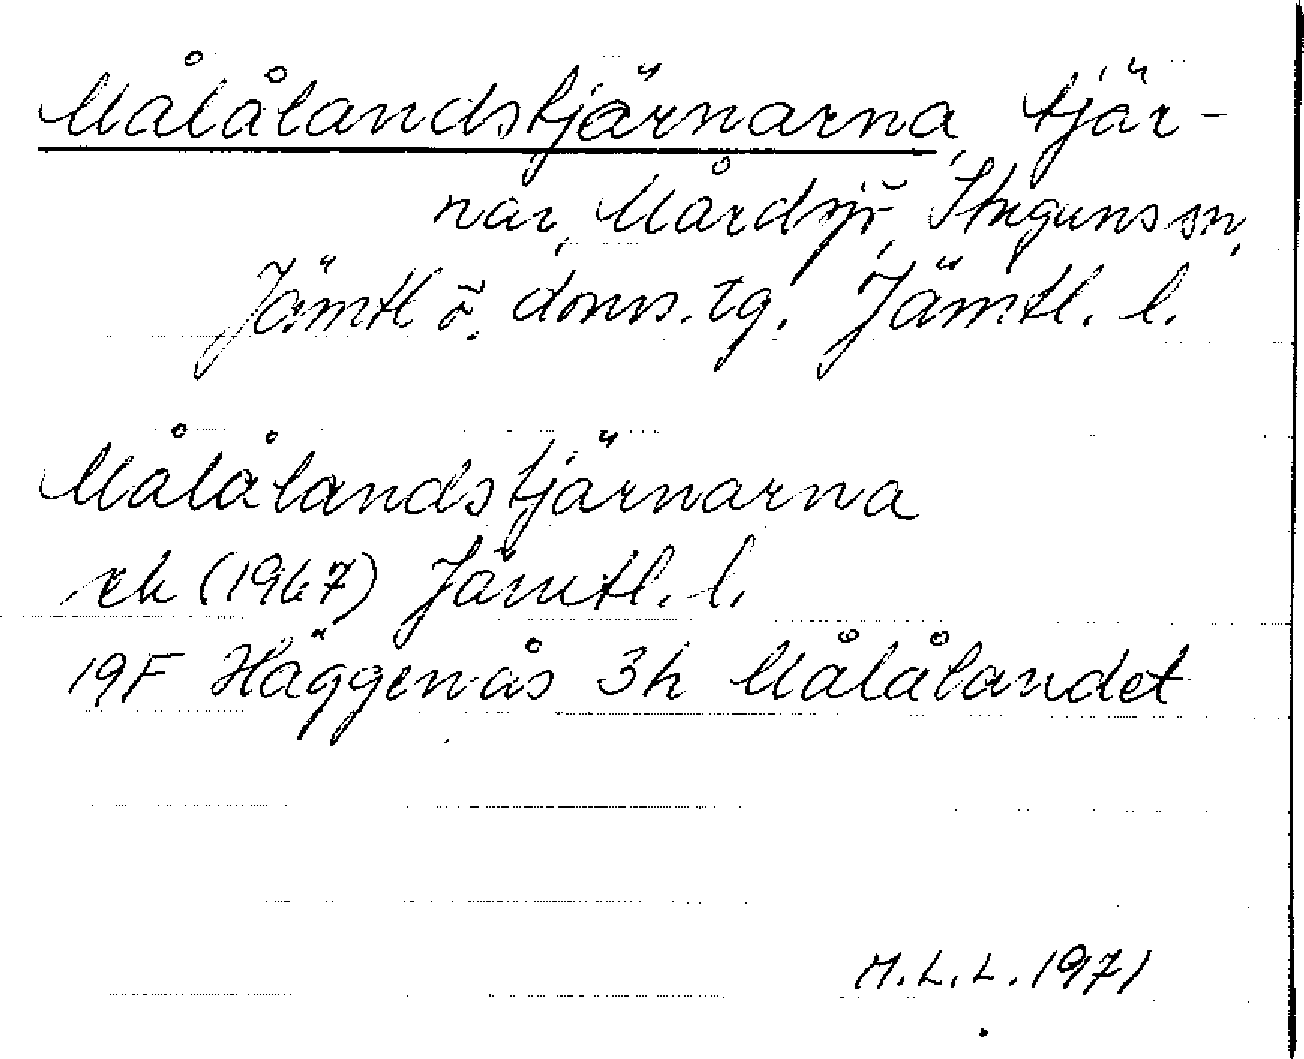 Målålandstjärnarna, tjär-
nar, Mårdsjö, Stuguns sn,
Jämtl ö. doms. tg. Jämtl. l.
Målålandstjärnarna
rek (1967) Jämtl. l.
19F Häggenås 3h Målålandet
M.L.L. 1971